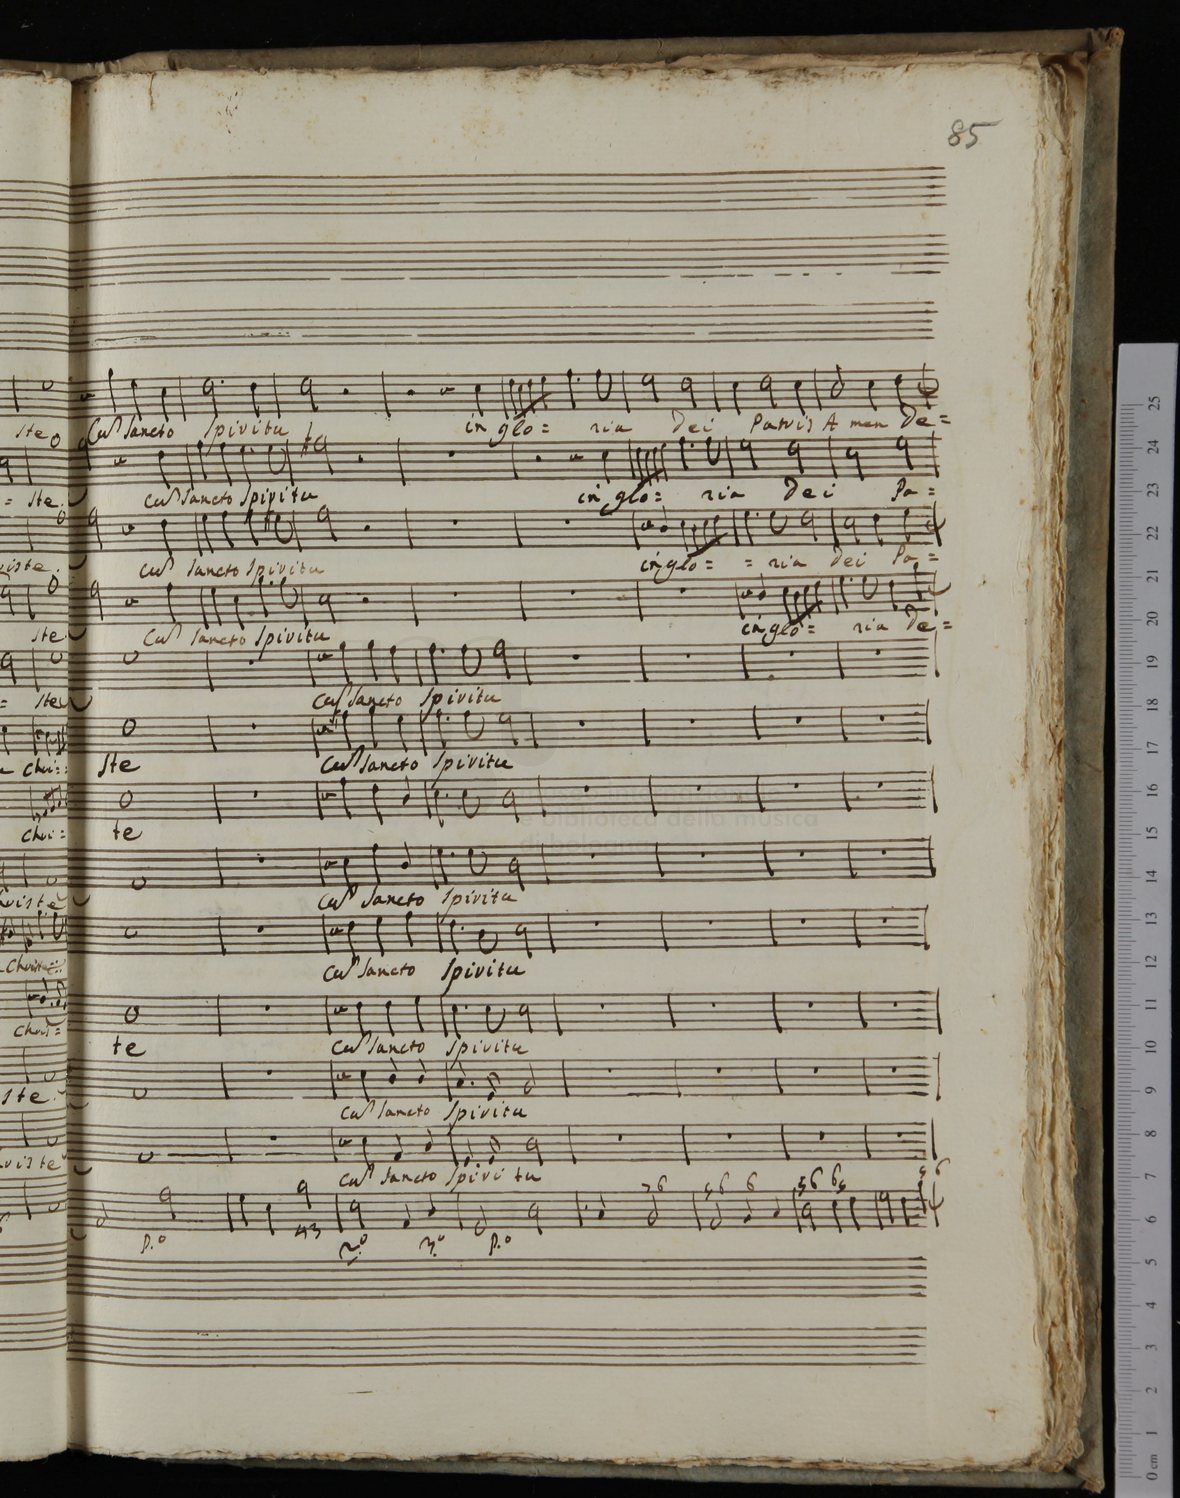 85
ste Cu Sancto Spiritu in glo= ria Dei Patris A men De=
= ste. Cu Sancto Spiritu in glo= ria Dei Pa=
riste. Cu Sancto Spiritu in glo= = ria Dei Pa=
ste Cu Sancto Spiritu in glo= ria De=
= ste Cu Sancto Spiritu
Chri= Ste Cu Sancto Spiritu
Chri= te
museo internazionale
e biblioteca della musica
di bologna
riste Cu Sancto Spiritu
Cu Sancto Spiritu
Chris= te Cu Sancto Spiritu
ste. Cu Sancto Spiritu
riste Cu Sancto Spiritu
7 6 5 6 6 5 6 6 5
4 3
p.o 2.o p.o
25
24
23
22
21
20
19
18
17
16
15
14
13
12
11
10
9
8
7
6
5
4
3
2
1
0 cm